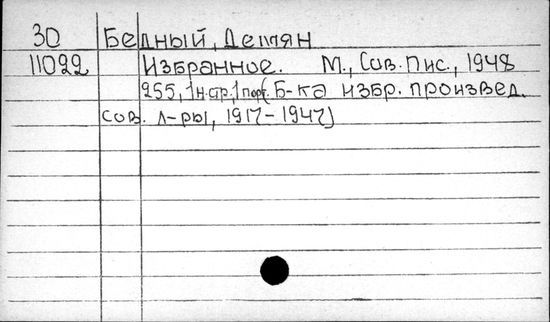 30 Бедный, Демян
11022 Избранное. М., Сов. Пис., 1948
255, 1 н. ср., 1 порт. (Б-ка избр. произвед.
сов. л-ры, 1917-1947)